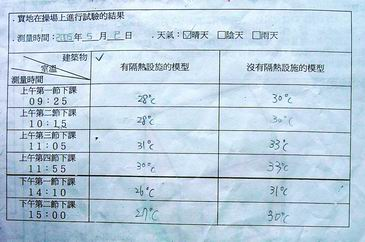 . 實地在操場上進行試驗的結果
. 測量時間：2005年5月2日 .天氣：☑晴天 □陰天 □雨天
建築物
室溫
測量時間
✓
有隔熱設施的模型
沒有隔熱設施的模型
上午第一節下課
09：25
28℃
30℃
上午第二節下課
10：15
28℃
30℃
上午第三節下課
11：05
31℃
33℃
上午第四節下課
11：55
30℃
33℃
下午第一節下課
14：10
26℃
31℃
下午第二節下課
15：00
27℃
30℃